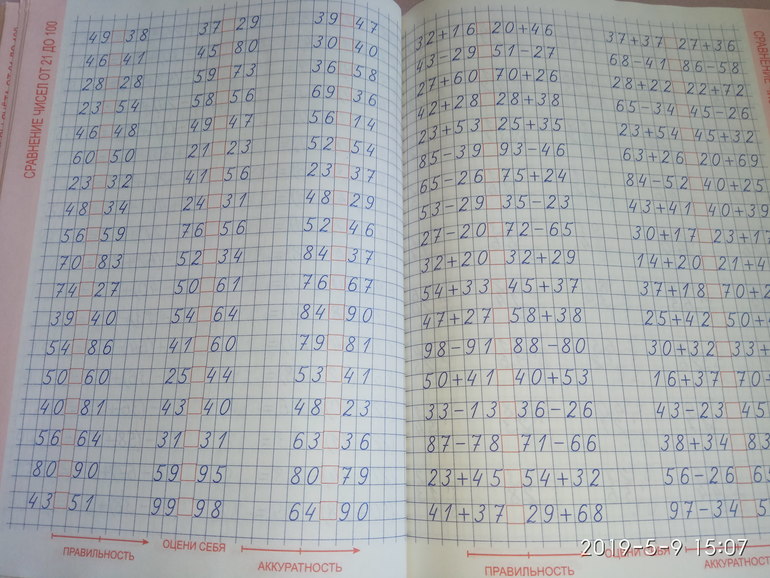 СРАВНЕНИЕ ЧИСЕЛ ОТ 21 ДО 100
49 38 37 29 39 47
46 41 45 80 30 40
28 28 59 73 36 58
23 54 58 56 69 36
46 48 49 47 56 14
60 50 21 23 52 54
23 32 41 56 23 37
48 34 24 31 48 29
56 59 76 56 52 46
70 83 52 34 84 37
74 27 50 61 76 67
39 40 54 64 84 90
54 86 41 60 79 81
50 60 25 44 53 41
40 81 43 40 48 23
56 64 31 31 63 36
80 90 59 95 80 79
43 51 99 98 64 90
ПРАВИЛЬНОСТЬ ОЦЕНИ СЕБЯ АККУРАТНОСТЬ
32+16 20+46 37+37 27+36
43-29 51-27 68-41 86-58
27+60 70+26 28+22 22+72
42+28 28+38 65-34 45-26
23+53 25+35 23+54 45+32
85-39 93-46 63+26 20+69
65-26 75+24 84-52 40+25
53-29 35-23 43+41 40+39
27-20 72-65 30+17 23+17
32+20 32+29 14+20 21+4
54+33 45+37 37+18 70+2
47+27 58+38 25+42 50+
98-91 88-80 30+32 33+
50+41 40+53 16+37 70+
33-13 36-26 43-23 45
87-78 71-66 38+34 83
23+45 54+32 56-26 65
41+37 29+68 97-34 5
ПРАВИЛЬНОСТЬ ОЦЕНИ СЕБЯ АККУРАТНОСТЬ
2019-5-9 15:07